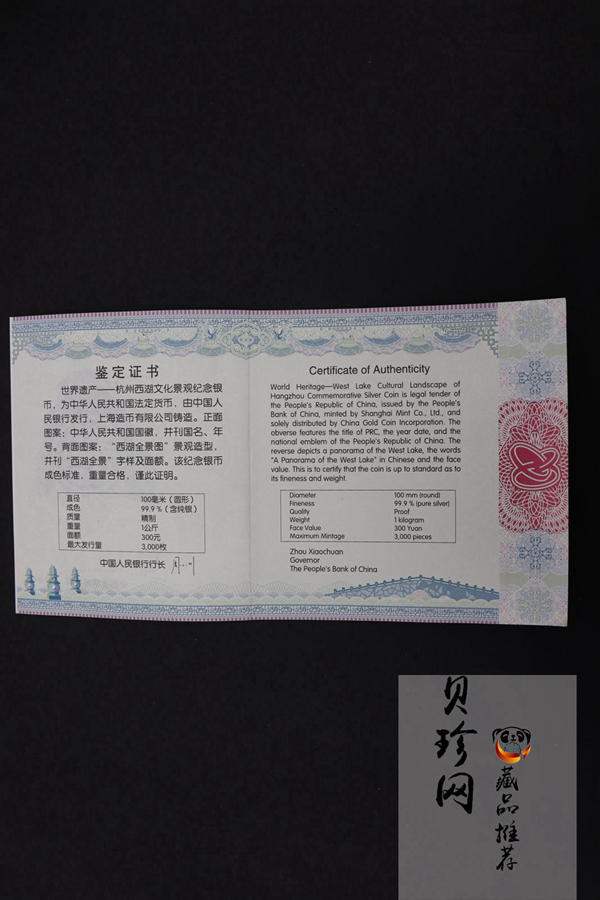 鉴定证书
世界遗产——杭州西湖文化景观纪念银
币，为中华人民共和国法定货币，由中国人
民银行发行，上海造币有限公司铸造。正面
图案：中华人民共和国国徽，并刊国名、年
号。背面图案：“西湖全景图”景观造型，
并刊“西湖全景”字样及面额。该纪念银币
成色标准，重量合格，谨此证明。
直径 100毫米（圆形）
成色 99.9％（含纯银）
质量 精制
重量 1公斤
面额 300元
最大发行量 3,000枚
中国人民银行行长
Certificate of Authenticity
World Heritage—West Lake Cultural Landscape of
Hangzhou Commemorative Silver Coin is legal tender of
the People's Republic of China, issued by the People's
Bank of China, minted by Shanghai Mint Co., Ltd., and
solely distributed by China Gold Coin Incorporation. The
obverse features the title of PRC, the year date, and the
national emblem of the People's Republic of China. The
reverse depicts a panorama of the West Lake, the words
"A Panorama of the West Lake" in Chinese and the face
value. This is to certify that the coin is up to standard as to
its fineness and weight.
Diameter 100 mm (round)
Fineness 99.9 % (pure silver)
Quality Proof
Weight 1 kilogram
Face Value 300 Yuan
Maximum Mintage 3,000 pieces
Zhou Xiaochuan
Governor
The People's Bank of China
贝珍网
藏品推荐